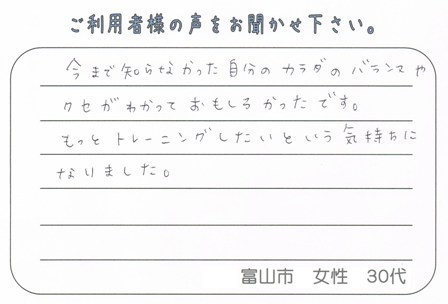 ご利用者様の声をお聞かせ下さい。
今まで知らなかった自分のカラダのバランスや
クセがわかっておもしろかったです。
もっとトレーニングしたいという気持ちに
なりました。
富山市 女性 30代